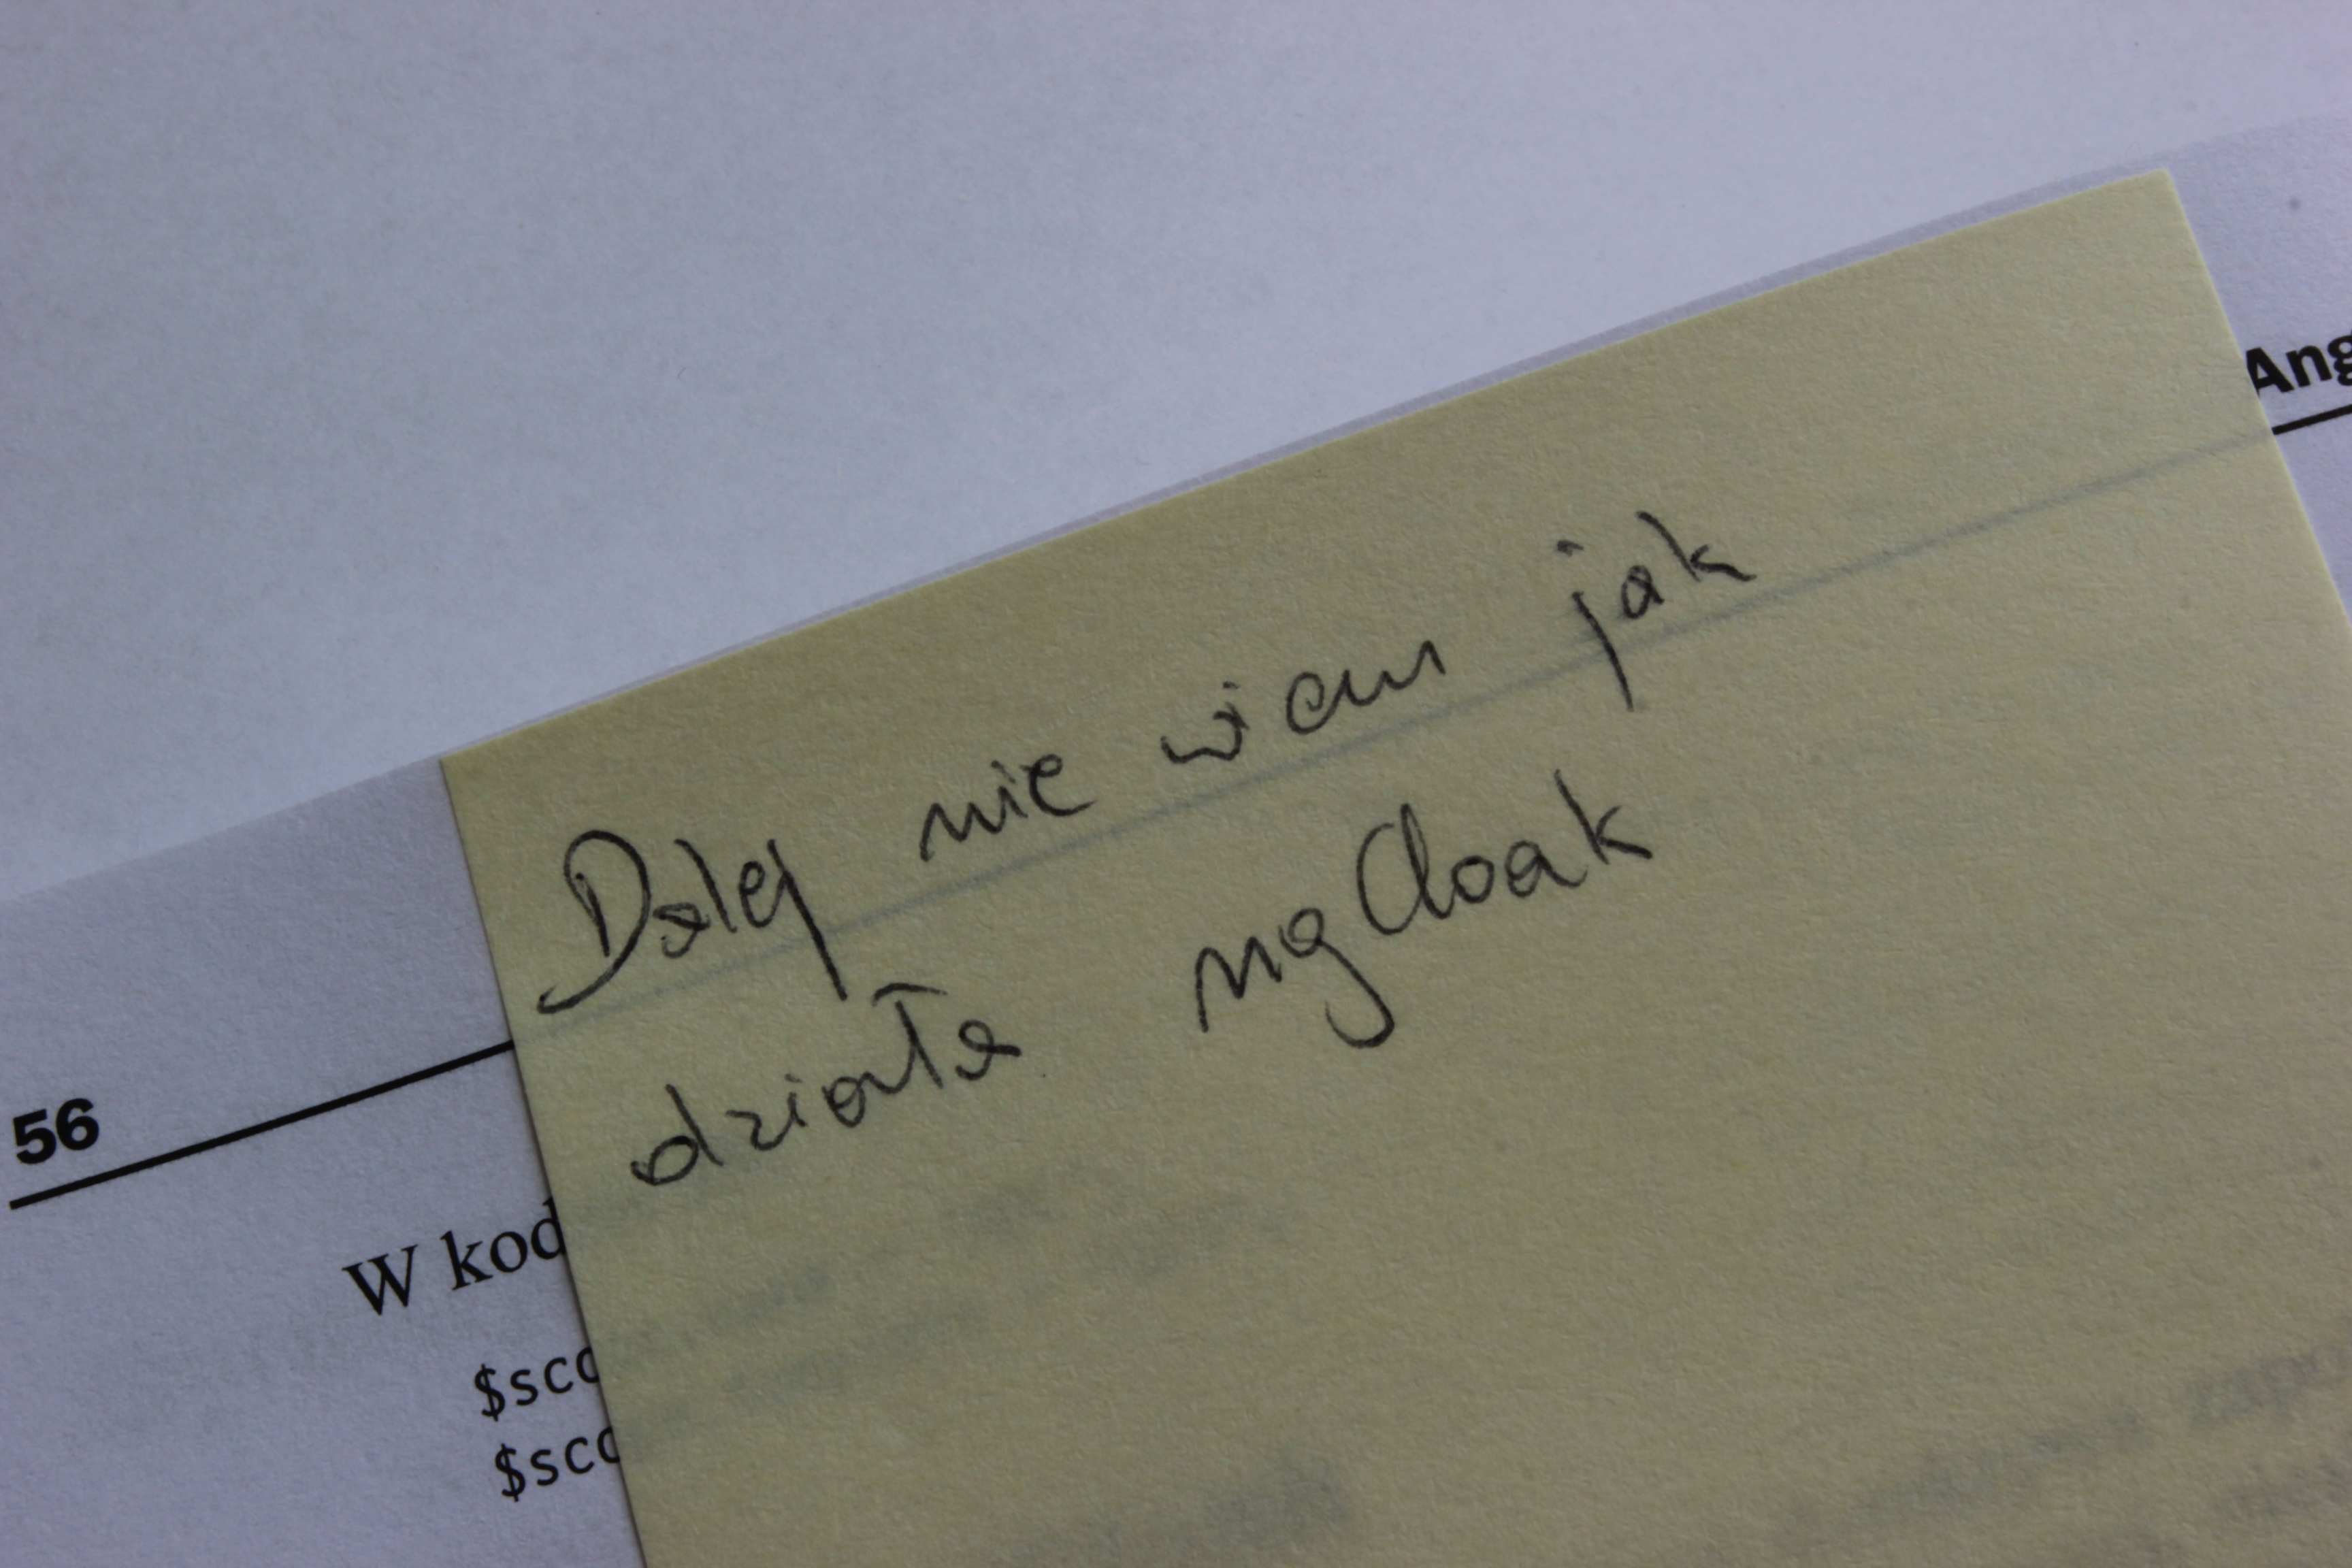 Ang
Dalej nie wiem jak
działa ngCloak
56
W kod
$sco
$sco